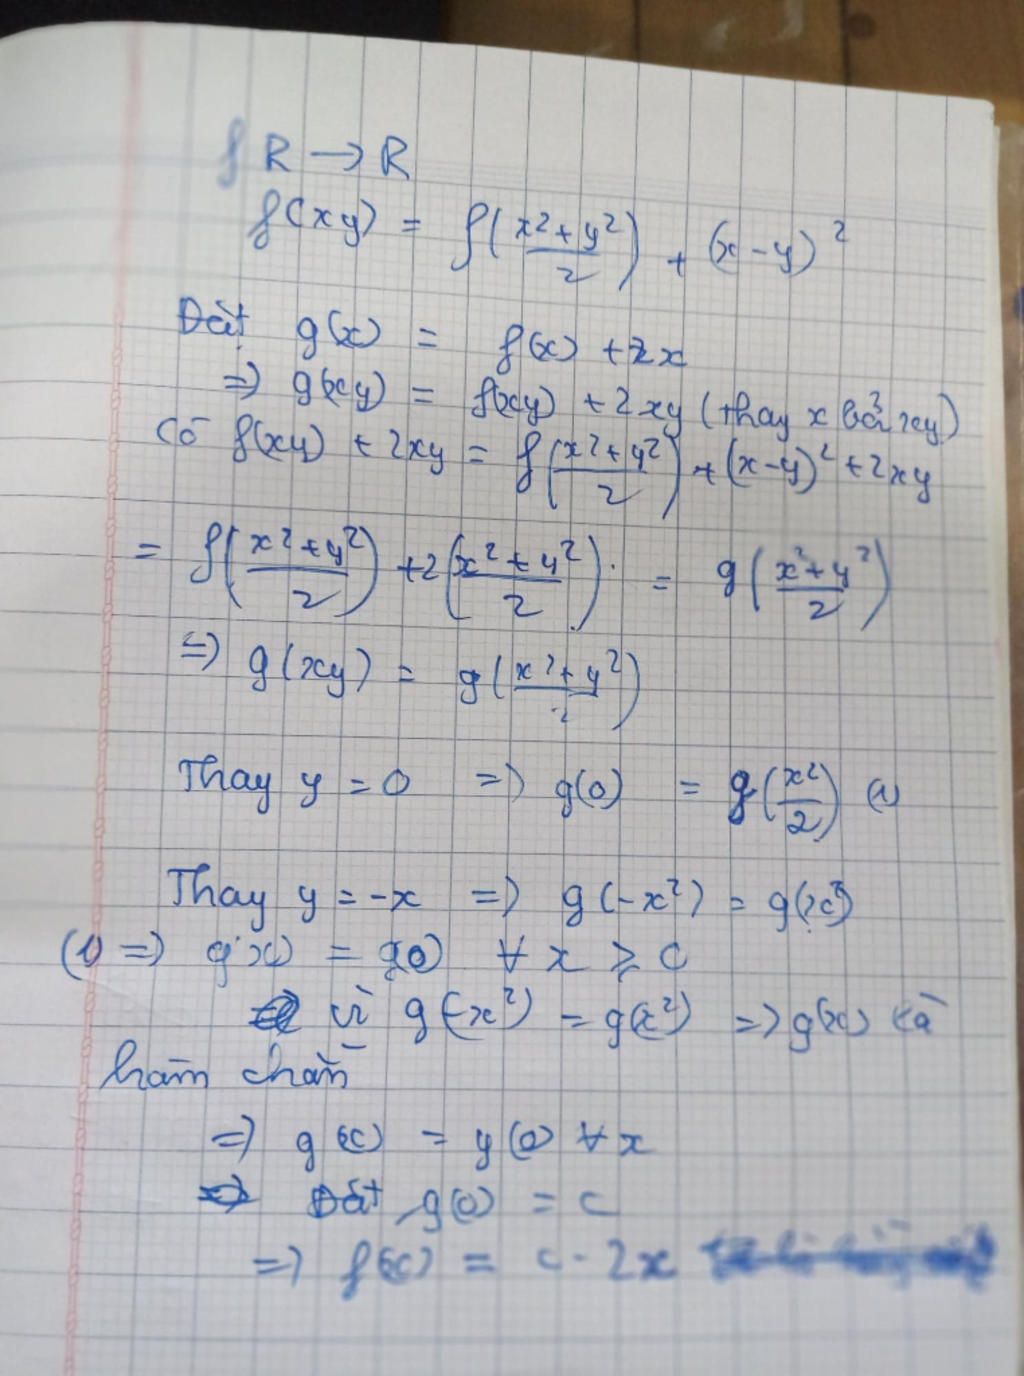 f R → R
f(xy) = f((x²+y²)/2) + (x-y)²
Đặt g(x) = f(x) + 2x
=> g(xy) = f(xy) + 2xy (thay x bởi xy)
Có f(xy) + 2xy = f((x²+y²)/2) + (x-y)² + 2xy
= f((x²+y²)/2) + 2((x²+y²)/2) = g((x²+y²)/2)
=> g(xy) = g((x²+y²)/2)
Thay y = 0 => g(0) = g(x²/2) (1)
Thay y = -x => g(-x²) = g(x²)
(1) => g(x) = g(0) ∀ x ≥ 0
vì g(-x²) = g(x²) => g(x) là
hàm chẵn
=> g(x) = g(0) ∀ x
Đặt g(0) = c
=> f(x) = c - 2x